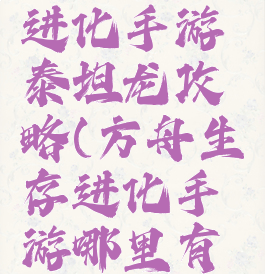 进化手游
泰坦龙攻
略(方舟生
存进化手
游哪里有